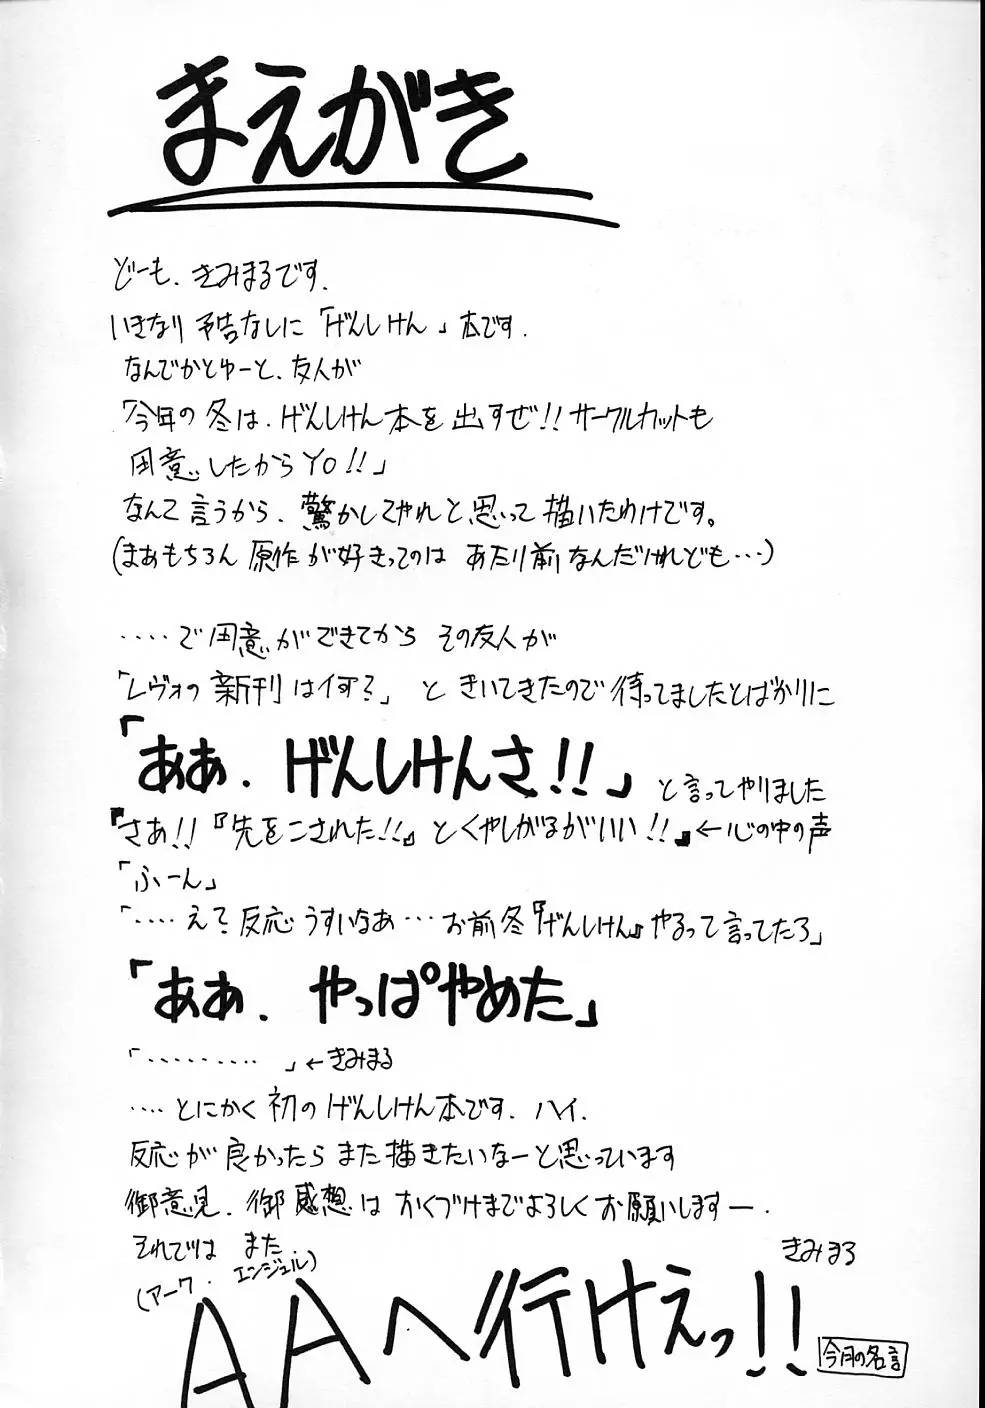 まえがき
どーも、きみまるです.
いきなり予告なしに「げんしけん」本です.
なんでかとゆーと、友人が
「今年の冬は、げんしけん本を出すぜ!!サークルカットも
用意したからYO!!」
なんて言うから、驚かしてやれと思って描いたわけです。
(まあもちろん原作が好きってのはあたり前なんだけれども…)
‥‥で用意ができてから その友人が
「レヴォの新刊は何?」ときいてきたので待ってましたとばかりに
「ああ、げんしけんさ!!」と言ってやりました
『さあ!!『先をこされた!!』とくやしがるがいい!!』←心の中の声
「ふーん」
「‥‥え?反応うすいなあ…お前冬『げんしけん』やるって言ってたろ」
「ああ、やっぱやめた」
「‥‥‥‥‥」←きみまる
‥‥とにかく初のげんしけん本です.ハイ.
反応が良かったらまた描きたいなーと思っています
御意見、御感想はおくづけまでよろしくお願いしますー.
それでは また.
きみまる
(アーク・エンジェル)
AAへ行けえっ!!
今月の名言